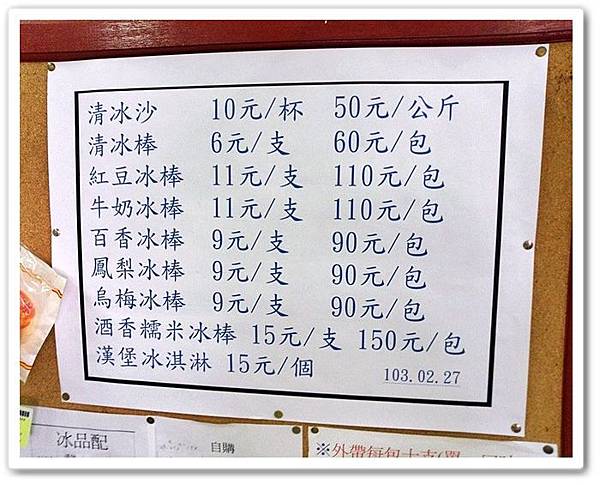 清冰沙 10元/杯 50元/公斤
清冰棒 6元/支 60元/包
紅豆冰棒 11元/支 110元/包
牛奶冰棒 11元/支 110元/包
百香冰棒 9元/支 90元/包
鳳梨冰棒 9元/支 90元/包
烏梅冰棒 9元/支 90元/包
酒香糯米冰棒 15元/支 150元/包
漢堡冰淇淋 15元/個
103.02.27
冰品配
自購
※外帶每包十支